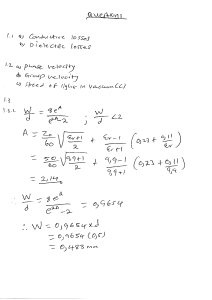 QUESTION 1
1.1 a) Conductive losses
b) Dielectric losses
1.2 a) phase velocity
b) Group velocity
c) speed of light in vacuum (c)
1.3
1.3.1 W/d = 8e^A / e^2A - 2 ; W/d < 2
A = Zo/60 √(εr+1/2) + εr-1/εr+1 (0,23 + 0,11/εr)
= 50/60 √(9,9+1/2) + 9,9-1/9,9+1 (0,23 + 0,11/9,9)
= 2,142
∴ W/d = 8e^A / e^2A - 2 = 0,9654
∴ W = 0,9654 x d
= 0,9654 (0,5)
= 0,483 mm